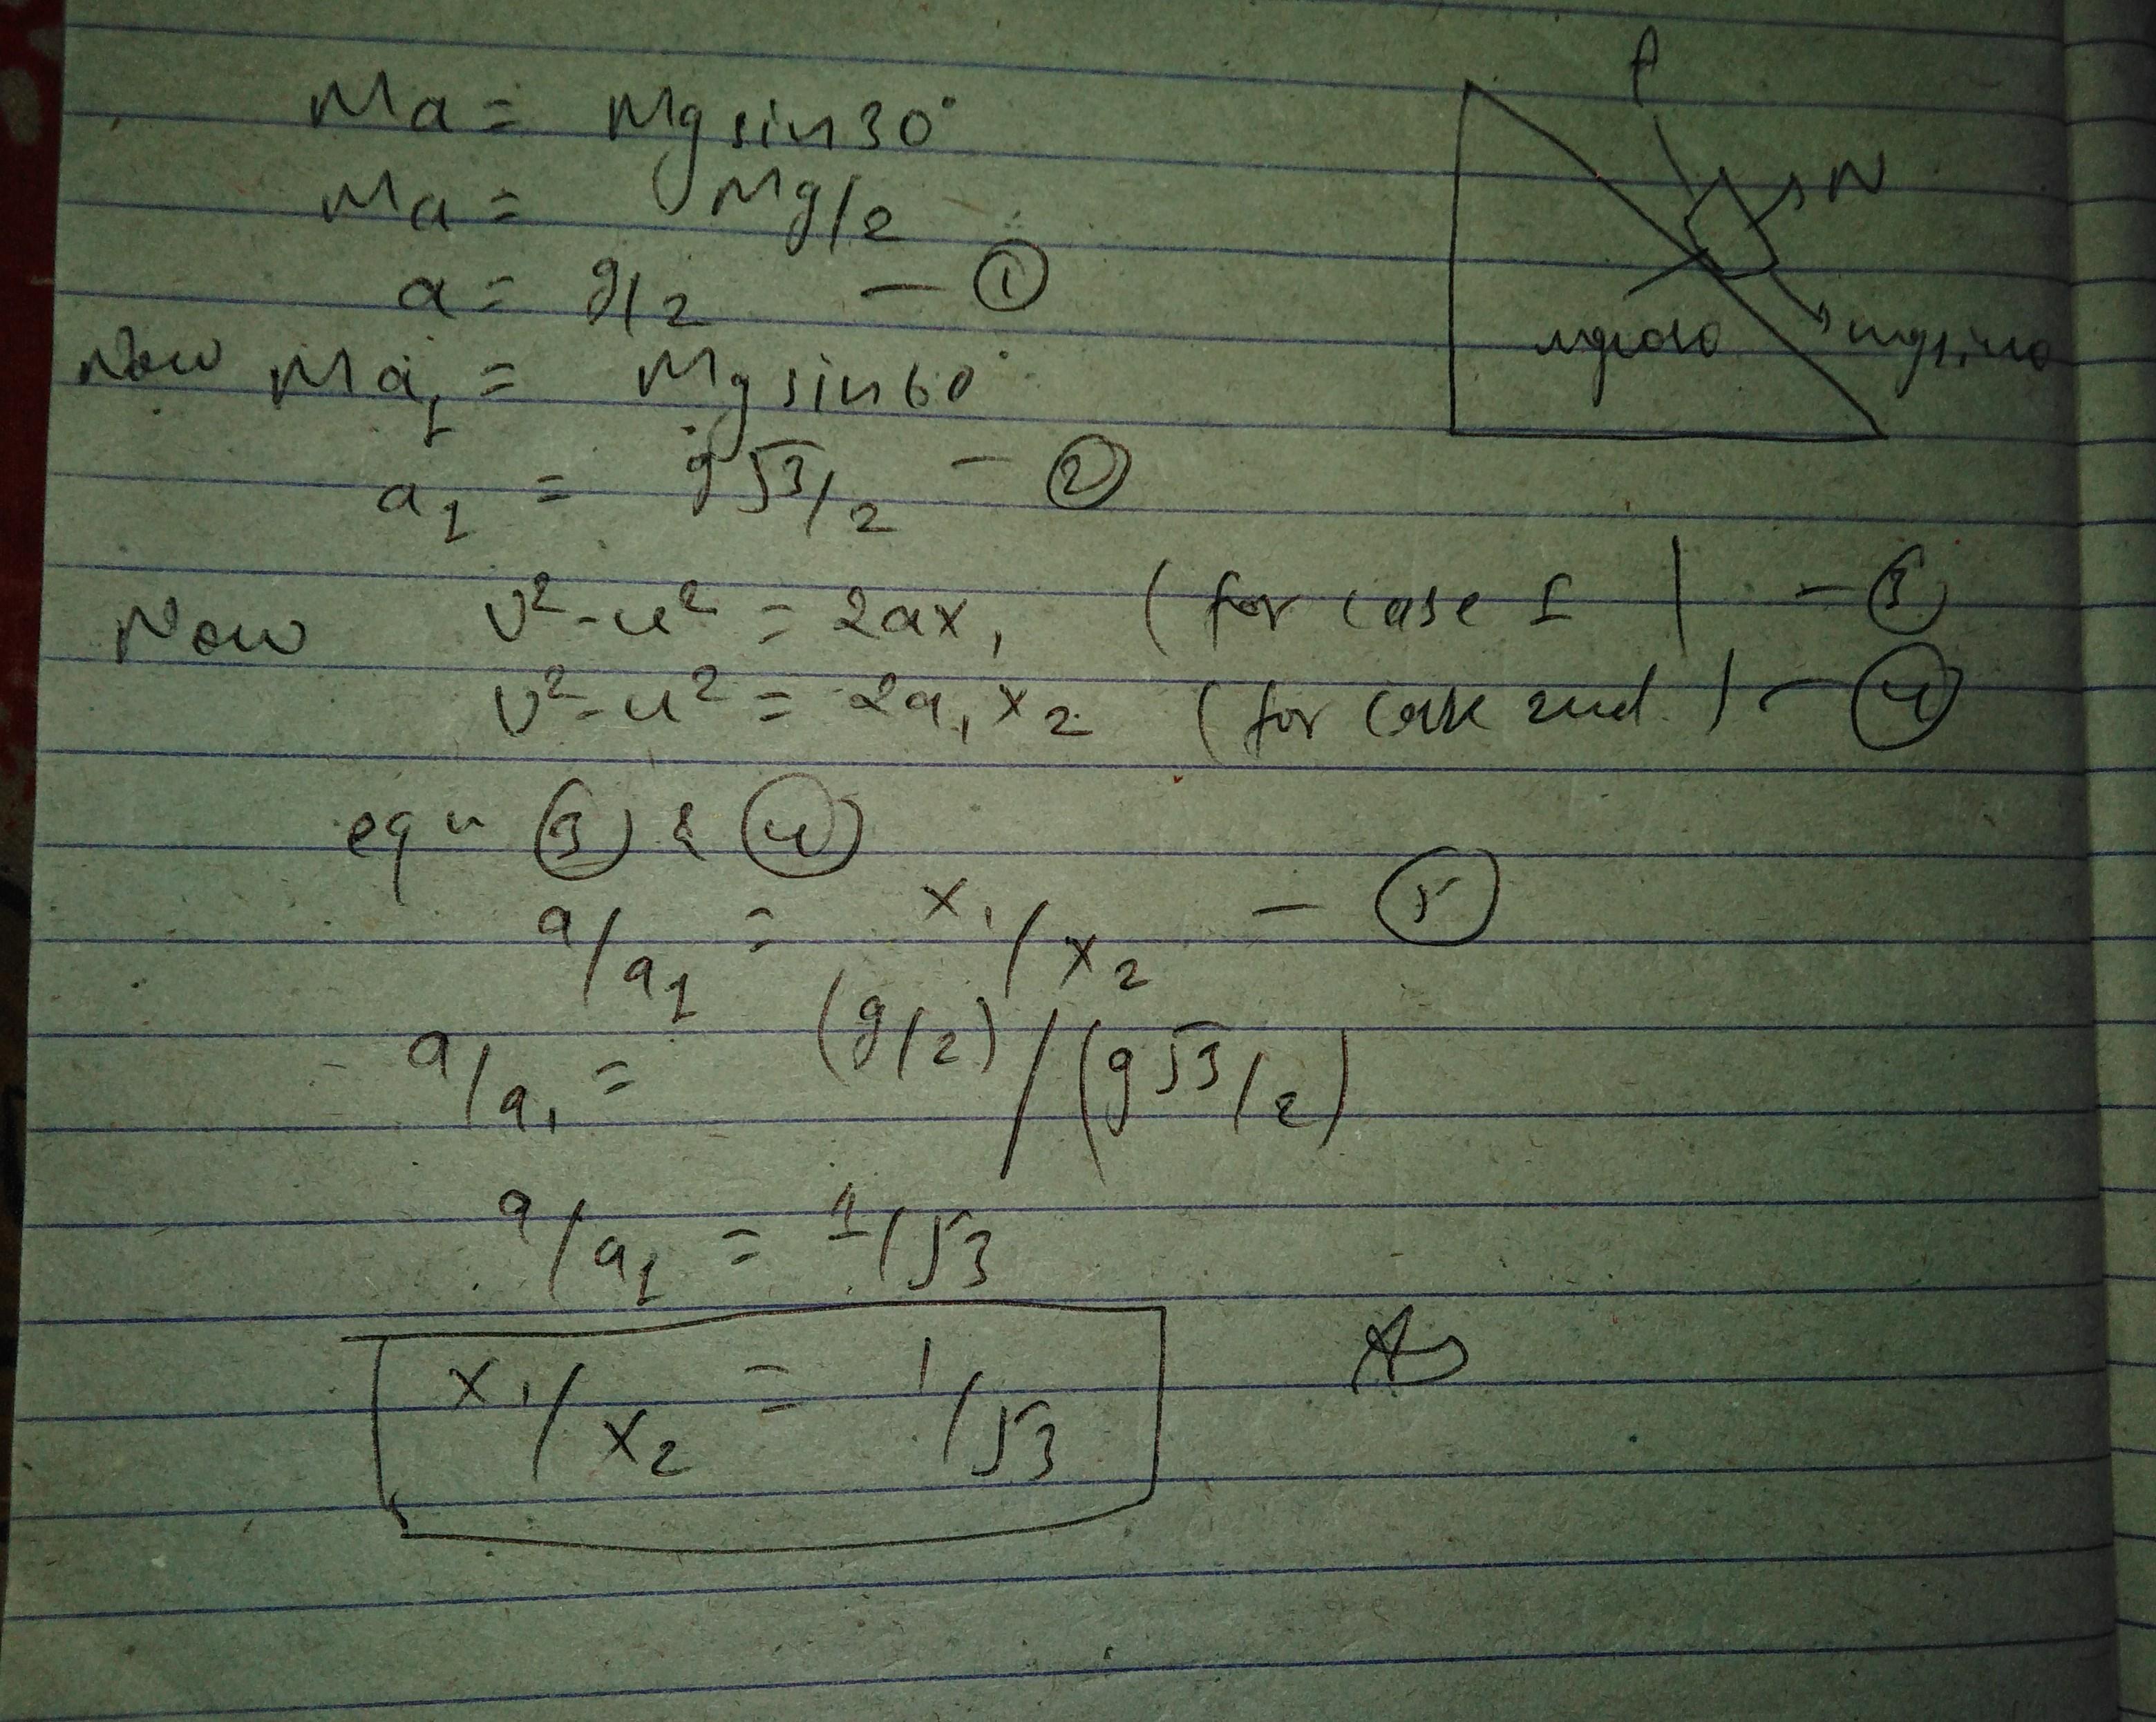 Ma = Mg sin30°
Ma = Mg/2
a = g/2 — ①
Now Ma₁ = Mg sin60°
a₁ = g√3/2 — ②
N
mgsinθ
Now v²-u² = 2ax₁ (for case I) — ③
v²-u² = 2a₁x₂ (for case 2nd.) — ④
eqn ③ & ④
a/a₁ = x₁/x₂ — ⑤
a/a₁ = (g/2)/(g√3/2)
a/a₁ = 1/√3
x₁/x₂ = 1/√3